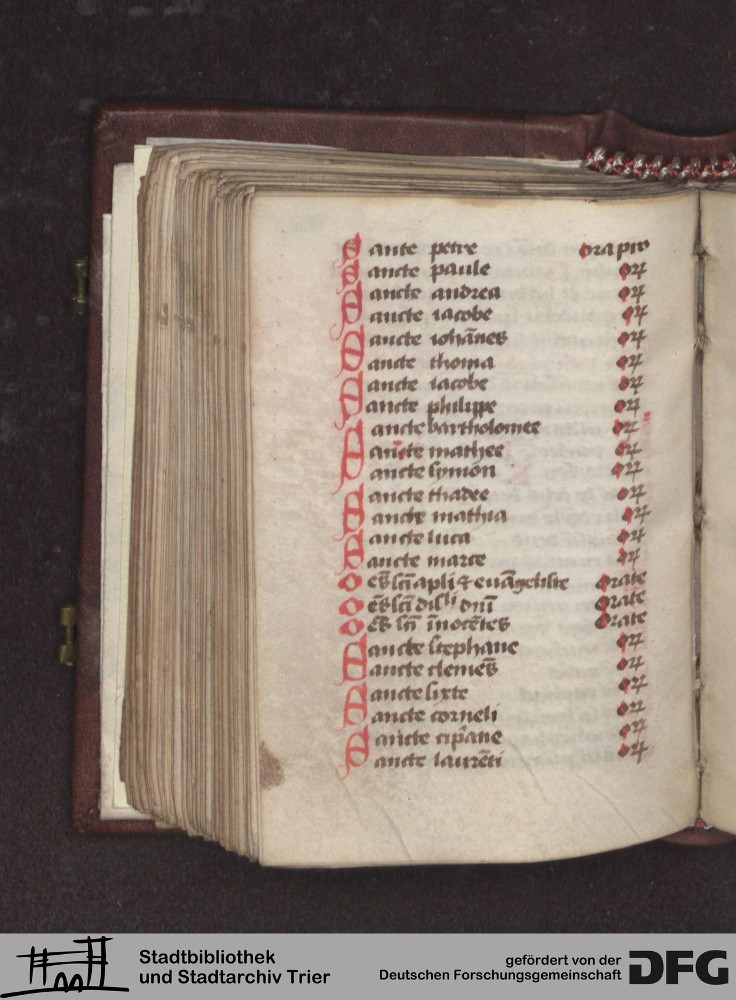 Sancte petre Ora pro
Sancte paule or
Sancte andrea or
Sancte iacobe or
Sancte iohānes or
Sancte thoma or
Sancte iacobe or
Sancte philippe or
Sancte bartholomee or
Sancte mathee or
Sancte symon or
Sancte thadee or
Sancte mathia or
Sancte luca or
Sancte marce or
Oēs scī apli & euāgeliste Orate
Oēs scī discli dnī Orate
Oēs scī īnocētes Orate
Sancte stephane or
Sancte clemēs or
Sancte sixte or
Sancte corneli or
Sancte cipane or
Sancte laurēti or
Stadtbibliothek
und Stadtarchiv Trier
gefördert von der
Deutschen Forschungsgemeinschaft
DFG